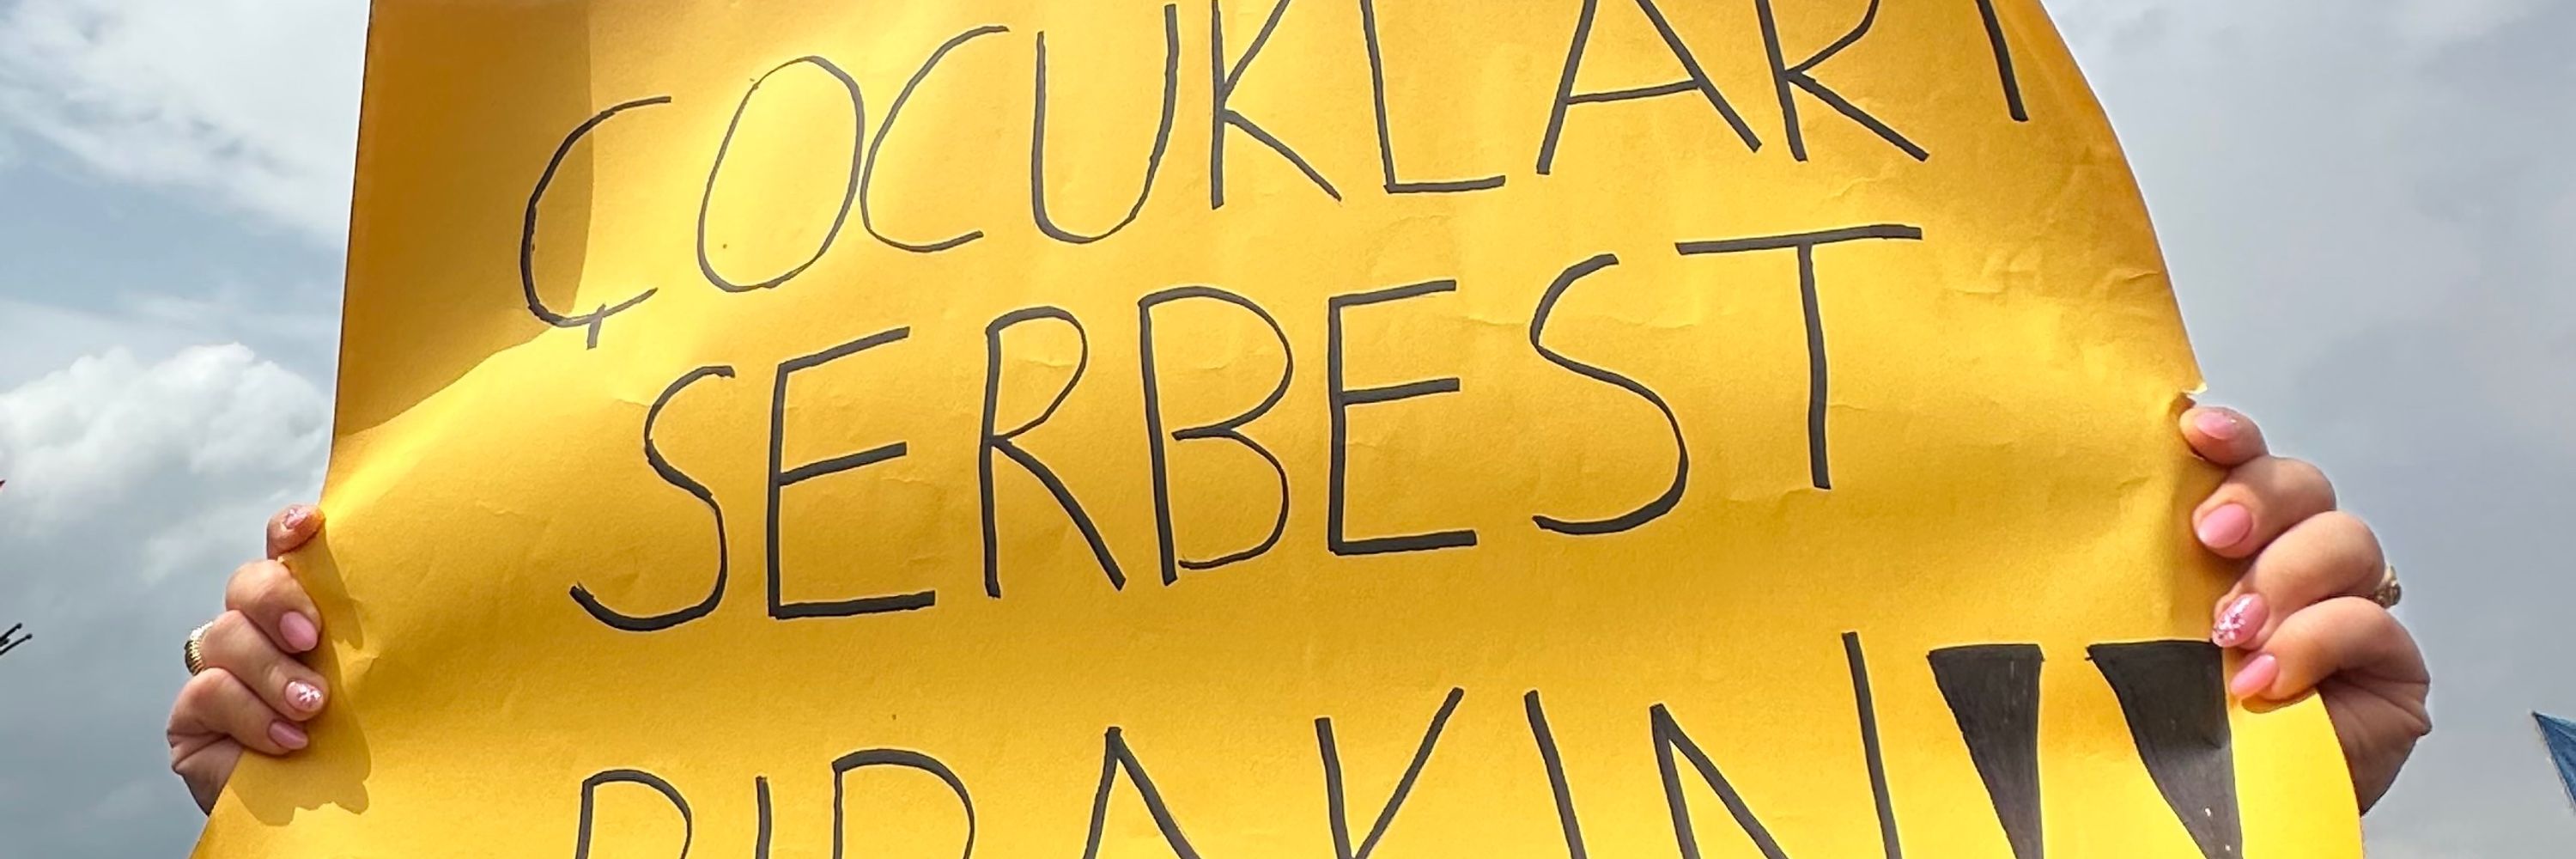 ÇOCUKLARI
SERBEST
BIRAKIN!!